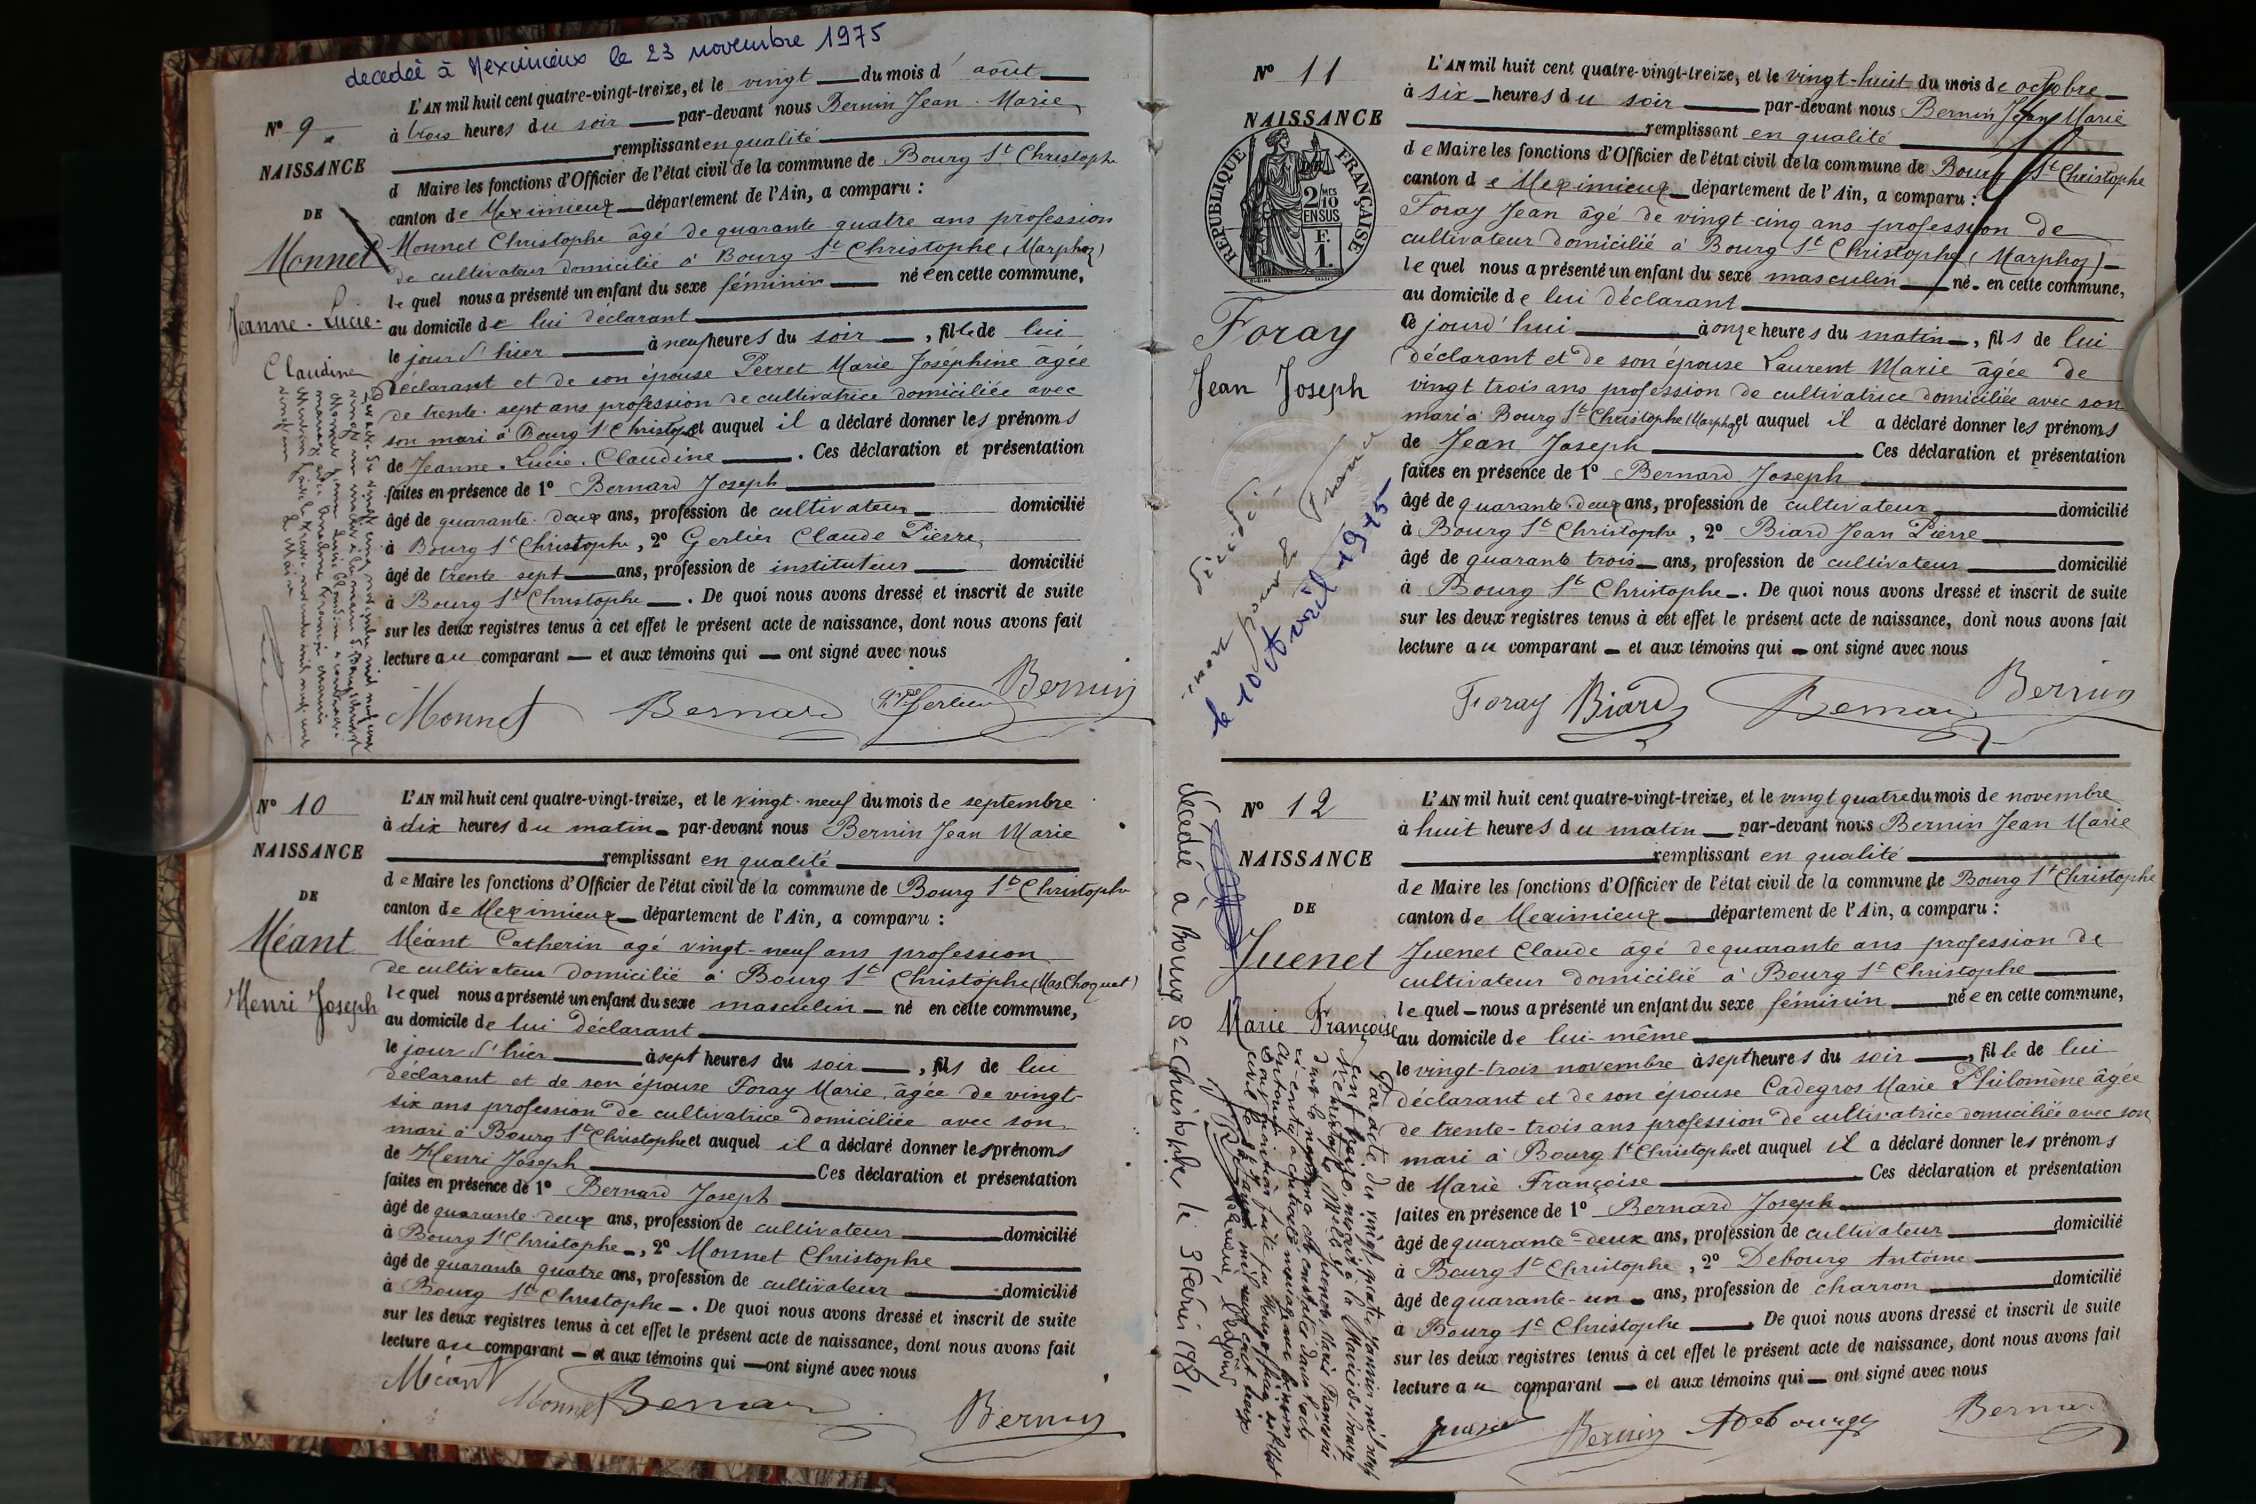 decedée à Meximieux le 23 novembre 1975
Nº 9
NAISSANCE
DE
Monnet
Jeanne-Lucie-
Claudine
L'AN mil huit cent quatre-vingt-treize, et le vingt du mois d'août
à trois heures du soir par-devant nous Bernin Jean-Marie
remplissant en qualité
d Maire les fonctions d'Officier de l'état civil de la commune de Bourg St Christophe
canton de Meximieux département de l'Ain, a comparu :
Monnet Christophe âgé de quarante quatre ans profession
de cultivateur domicilié à Bourg St Christophe (Marphoz)
lequel nous a présenté un enfant du sexe féminin née en cette commune,
au domicile de lui déclarant
le jour d'hier à neuf heures du soir, fille de lui
déclarant et de son épouse Perret Marie Joséphine âgée
de trente-sept ans profession de cultivatrice domiciliée avec
son mari à Bourg St Christophe et auquel il a déclaré donner les prénoms
de Jeanne-Lucie-Claudine. Ces déclaration et présentation
faites en présence de 1º Bernard Joseph
âgé de quarante-deux ans, profession de cultivateur domicilié
à Bourg St Christophe, 2º Gerlier Claude Pierre
âgé de trente sept ans, profession de instituteur domicilié
à Bourg St Christophe. De quoi nous avons dressé et inscrit de suite
sur les deux registres tenus à cet effet le présent acte de naissance, dont nous avons fait
lecture au comparant et aux témoins qui ont signé avec nous
Monnet Bernard Gerlier Bernin
Nº 10
NAISSANCE
DE
Méant
Henri Joseph
L'AN mil huit cent quatre-vingt-treize, et le vingt-neuf du mois de septembre
à dix heures du matin par-devant nous Bernin Jean Marie
remplissant en qualité
de Maire les fonctions d'Officier de l'état civil de la commune de Bourg St Christophe
canton de Meximieux département de l'Ain, a comparu :
Méant Catherin agé vingt-neuf ans profession
de cultivateur domicilié à Bourg St Christophe (Mas Choquet)
lequel nous a présenté un enfant du sexe masculin né en cette commune,
au domicile de lui déclarant
le jour d'hier à sept heures du soir, fils de lui
déclarant et de son épouse Foray Marie, âgée de vingt-
six ans profession de cultivatrice domiciliée avec son
mari à Bourg St Christophe et auquel il a déclaré donner les prénoms
de Henri Joseph Ces déclaration et présentation
faites en présence de 1º Bernard Joseph
âgé de quarante-deux ans, profession de cultivateur domicilié
à Bourg St Christophe, 2º Monnet Christophe
âgé de quarante quatre ans, profession de cultivateur domicilié
à Bourg St Christophe. De quoi nous avons dressé et inscrit de suite
sur les deux registres tenus à cet effet le présent acte de naissance, dont nous avons fait
lecture au comparant et aux témoins qui ont signé avec nous
Méant Monnet Bernard Bernin
Nº 11
NAISSANCE
REPUBLIQUE FRANÇAISE
2/10 MES
EN SUS
F.
1.
Foray
Jean Joseph
décédé
mort pour la France
le 10 Avril 1915
L'AN mil huit cent quatre-vingt-treize, et le vingt-huit du mois de octobre
à six heures du soir par-devant nous Bernin Jean Marie
remplissant en qualité
de Maire les fonctions d'Officier de l'état civil de la commune de Bourg St Christophe
canton de Meximieux département de l'Ain, a comparu :
Foray Jean âgé de vingt-cinq ans profession de
cultivateur domicilié à Bourg St Christophe (Marphoz)
lequel nous a présenté un enfant du sexe masculin né en cette commune,
au domicile de lui déclarant
ce jourd'hui à onze heures du matin, fils de lui
déclarant et de son épouse Laurent Marie âgée de
vingt trois ans profession de cultivatrice domiciliée avec son
mari à Bourg St Christophe (Marphoz) et auquel il a déclaré donner les prénoms
de Jean Joseph Ces déclaration et présentation
faites en présence de 1º Bernard Joseph
âgé de quarante-deux ans, profession de cultivateur domicilié
à Bourg St Christophe, 2º Biard Jean Pierre
âgé de quarante trois ans, profession de cultivateur domicilié
à Bourg St Christophe. De quoi nous avons dressé et inscrit de suite
sur les deux registres tenus à cet effet le présent acte de naissance, dont nous avons fait
lecture au comparant et aux témoins qui ont signé avec nous
Foray Biard Bernard Bernin
Nº 12
NAISSANCE
DE
Juenet
Marie Françoise
décédée à Bourg St Christophe le
L'AN mil huit cent quatre-vingt-treize, et le vingt quatre du mois de novembre
à huit heures du matin par-devant nous Bernin Jean Marie
remplissant en qualité
de Maire les fonctions d'Officier de l'état civil de la commune de Bourg St Christophe
canton de Meximieux département de l'Ain, a comparu :
Juenet Claude âgé de quarante ans profession de
cultivateur domicilié à Bourg St Christophe
lequel nous a présenté un enfant du sexe féminin née en cette commune,
au domicile de lui-même
le vingt-trois novembre à sept heures du soir, fille de lui
déclarant et de son épouse Cadegros Marie Philomène âgée
de trente-trois ans profession de cultivatrice domiciliée avec son
mari à Bourg St Christophe et auquel il a déclaré donner les prénoms
de Marie Françoise Ces déclaration et présentation
faites en présence de 1º Bernard Joseph
âgé de quarante-deux ans, profession de cultivateur domicilié
à Bourg St Christophe, 2º Debourg Antoine
âgé de quarante-un ans, profession de charron domicilié
à Bourg St Christophe. De quoi nous avons dressé et inscrit de suite
sur les deux registres tenus à cet effet le présent acte de naissance, dont nous avons fait
lecture au comparant et aux témoins qui ont signé avec nous
Bernin ADebourg Bernard